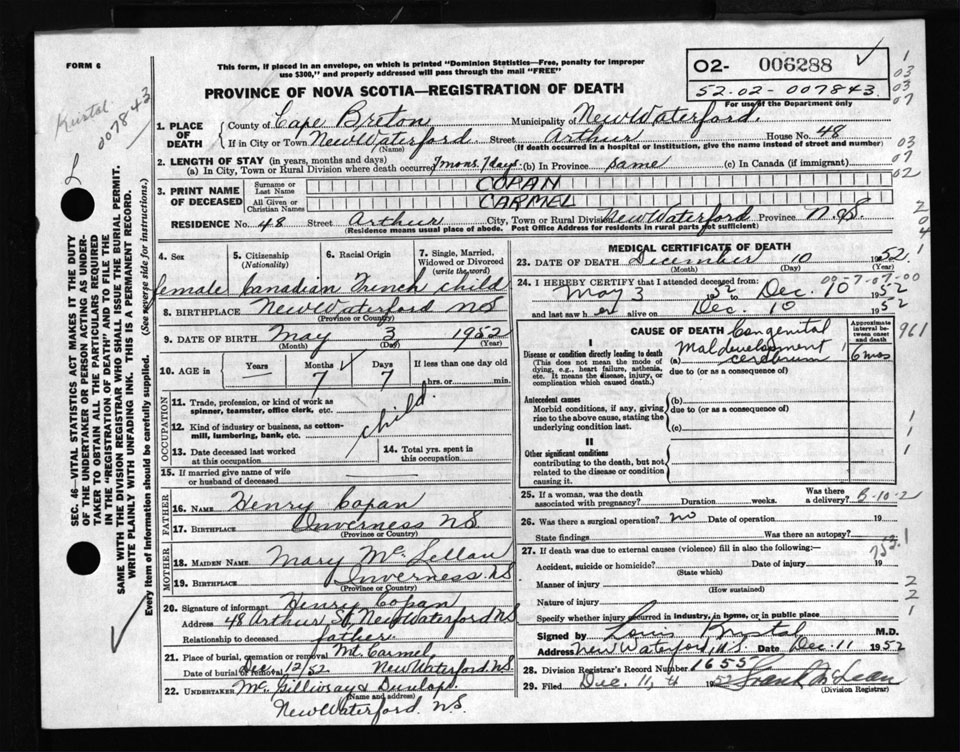 FORM 6
This form, if placed in an envelope, on which is printed "Dominion Statistics—Free, penalty for improper
use $300," and properly addressed will pass through the mail "FREE"
O2- 006288
52-02-007843.
For use of the Department only
Kristal
007843
PROVINCE OF NOVA SCOTIA—REGISTRATION OF DEATH
1. PLACE OF DEATH County of Cape Breton Municipality of New Waterford.
If in City or Town New Waterford Street Arthur House No. 48
(Name) (If death occurred in a hospital or institution, give the name instead of street and number)
2. LENGTH OF STAY (in years, months and days)
(a) In City, Town or Rural Division where death occurred 7 mons. 7 days (b) In Province same (c) In Canada (if immigrant)
3. PRINT NAME OF DECEASED Surname or Last Name COPAN
All Given or Christian Names CARMEL
RESIDENCE No. 48 Street Arthur City, Town or Rural Division New Waterford Province N.S.
(Residence means usual place of abode. Post Office Address for residents in rural parts not sufficient)
4. Sex 5. Citizenship (Nationality) 6. Racial Origin 7. Single, Married, Widowed or Divorced (write the word)
female Canadian French child
8. BIRTHPLACE New Waterford NS
(Province or Country)
9. DATE OF BIRTH May 3 1952
(Month) (Day) (Year)
10. AGE in Years — Months 7 Days 7 If less than one day old
hrs. or min.
OCCUPATION
11. Trade, profession, or kind of work as spinner, teamster, office clerk, etc.
12. Kind of industry or business, as cotton-mill, lumbering, bank, etc.
child.
13. Date deceased last worked at this occupation
14. Total yrs. spent in this occupation
15. If married give name of wife or husband of deceased
FATHER
16. NAME Henry Copan
17. BIRTHPLACE Inverness NS
(Province or Country)
MOTHER
18. MAIDEN NAME Mary McLellan
19. BIRTHPLACE Inverness NS
(Province or Country)
20. Signature of informant Henry Copan
Address 48 Arthur St, New Waterford NS
Relationship to deceased father.
21. Place of burial, cremation or removal Mt. Carmel
Date of burial or removal Dec. 12/52 New Waterford. N.S.
22. UNDERTAKER McGillivray & Dunlop.
(Name and address)
New Waterford. N.S.
MEDICAL CERTIFICATE OF DEATH
23. DATE OF DEATH December 10 1952.
(Month) (Day) (Year)
24. I HEREBY CERTIFY that I attended deceased from:
00-7-07-00
May 3 1952 to Dec. 10 1952
and last saw her alive on Dec. 10 1952
CAUSE OF DEATH
Approximate interval between onset and death
I
Disease or condition directly leading to death
(This does not mean the mode of dying, e.g., heart failure, asthenia, etc. It means the disease, injury, or complication which caused death.)
(a) Congenital Maldevelopment cerebrum 6 mos
due to (or as a consequence of)
Antecedent causes
Morbid conditions, if any, giving rise to the above cause, stating the underlying condition last.
(b)
due to (or as a consequence of)
(c)
II
Other significant conditions
contributing to the death, but not related to the disease or condition causing it.
961
25. If a woman, was the death associated with pregnancy? Duration weeks. Was there a delivery? B-10-2
26. Was there a surgical operation? no Date of operation 19
State findings Was there an autopsy?
27. If death was due to external causes (violence) fill in also the following:—
752.1
Accident, suicide or homicide? Date of injury 19
(State which)
Manner of injury
(How sustained)
Nature of injury
Specify whether injury occurred in industry, in home, or in public place
Signed by Louis Kristal M.D.
Address New Waterford, N.S. Date Dec. 11 1952
28. Division Registrar's Record Number 1655
29. Filed Dec. 11, 195
(Division Registrar)
SEC. 46—VITAL STATISTICS ACT MAKES IT THE DUTY
OF THE UNDERTAKER OR PERSON ACTING AS UNDER-
TAKER TO OBTAIN ALL THE PARTICULARS REQUIRED
IN THE "REGISTRATION OF DEATH" AND TO FILE THE
SAME WITH THE DIVISION REGISTRAR WHO SHALL ISSUE THE BURIAL PERMIT.
WRITE PLAINLY WITH UNFADING INK. THIS IS A PERMANENT RECORD.
Every item of information should be carefully supplied. (See reverse side for instructions.)